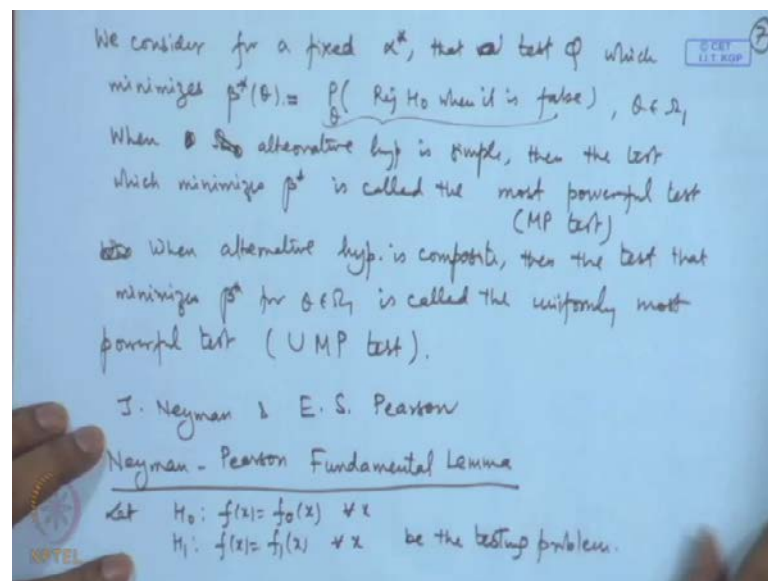 We consider for a fixed α*, that test φ which
minimizes β*(θ) = P_θ ( Rej H₀ when it is false), θ ∈ Ω₁
When alternative hyp is simple, then the test
which minimizes β* is called the most powerful test
(MP test)
When alternative hyp. is composite, then the test that
minimizes β* for θ ∈ Ω₁ is called the uniformly most
powerful test (UMP test).
J. Neyman & E. S. Pearson
Neyman - Pearson Fundamental Lemma
Let H₀: f(x) = f₀(x) ∀ x
H₁: f(x) = f₁(x) ∀ x be the testing problem.
© CET
I.I.T. KGP
7
NPTEL